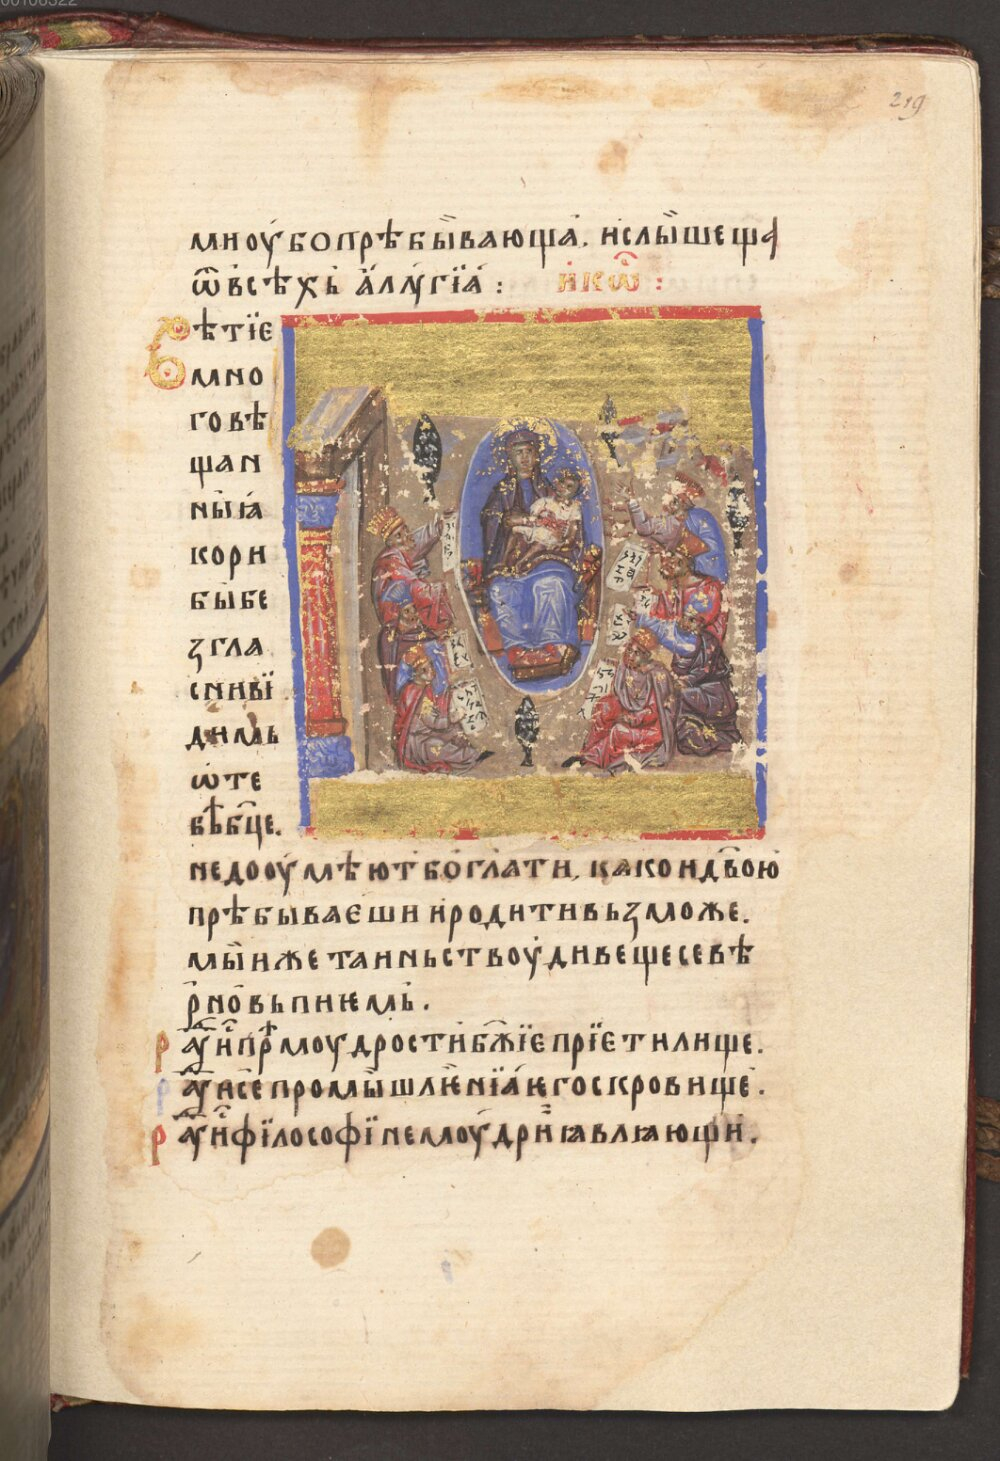 219
мноу́бопрѣбы́вающа́. и́слы́шеща
ѿвсѣхь а҆ллу́гїа́ : и҆кѡ҆с :
вѣтїе
мно
говѣ
щан
ны́ꙗ
кори
бы́бе
ꙁгла
снивї
димь
ѡ҆те
вѣбц҃е.
недооу́мѣютбо́гл҃ати, какоидв҃ою
прѣбываѥши и҆родитивьꙁможе.
мы́ижетаиньствоу́дивещесевѣ
р́но́вьпиѥмь.
ра́у́и́прѣмоудростибж҃їѥпрїѥтилище.
ра́у́и́се́промы́шлѥнїа́ѥгоскровище.
ра́у́и́фїлософїинемоу́дрїиꙗвлꙗющи.